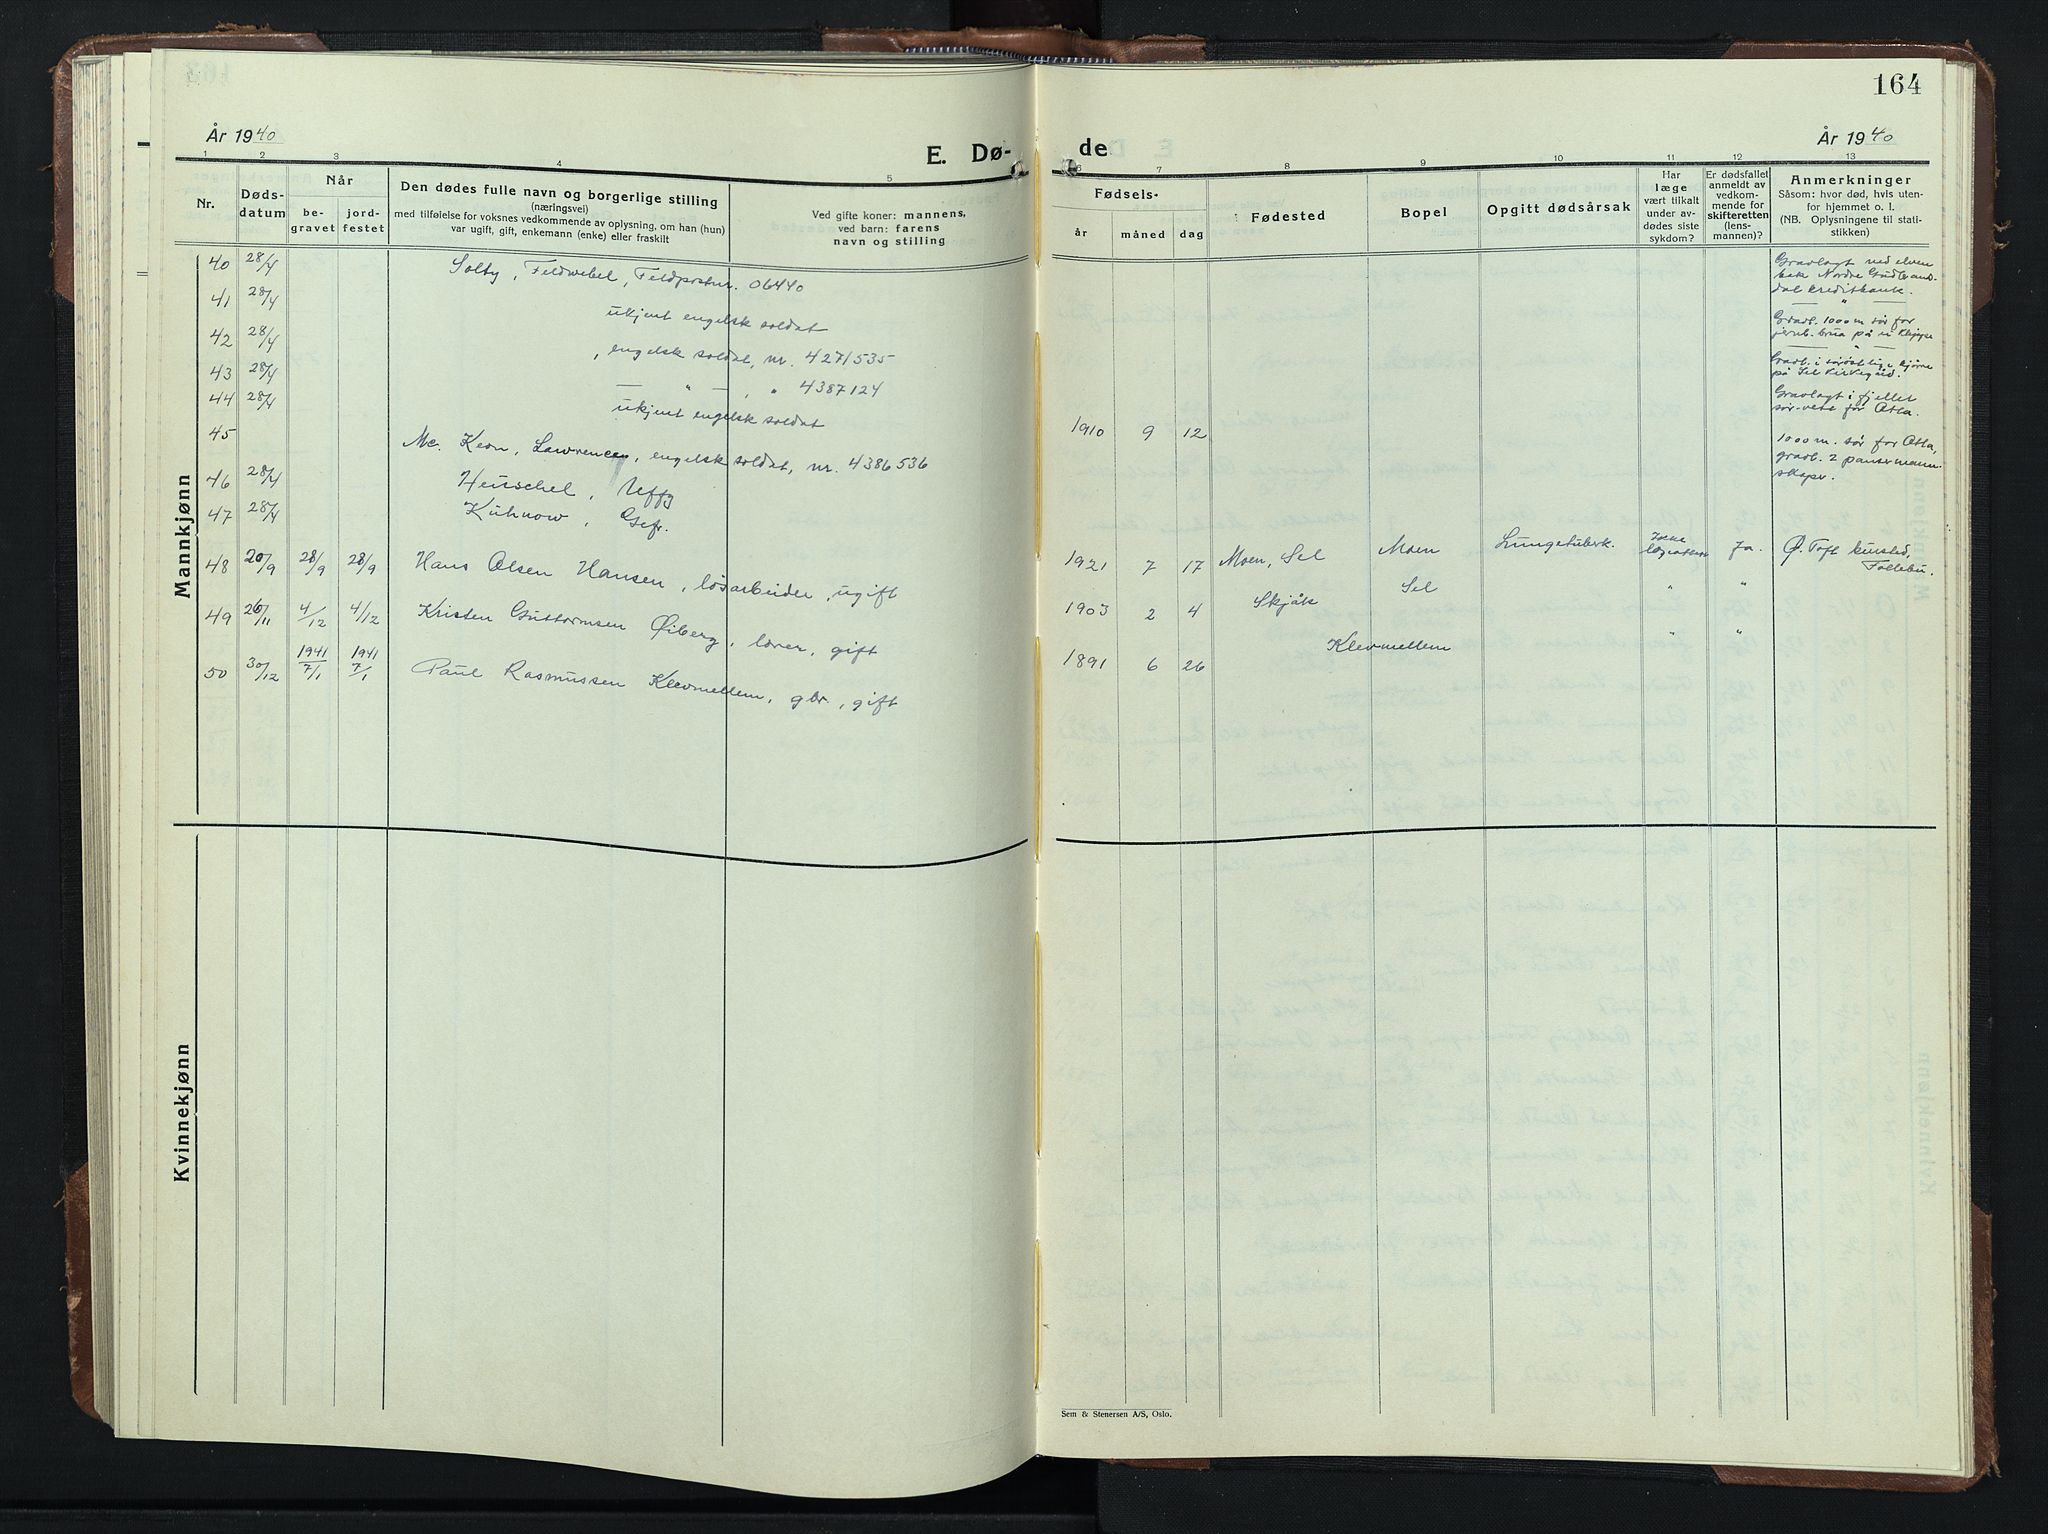 164
År 1940
E. Dø-
de
År 1940
1 2 3 4 5
6 7 8 9 10 11 12 13
Nr.
Døds-
datum
Når
be-
gravet
jord-
festet
Den dødes fulle navn og borgerlige stilling
(næringsvei)
med tilføielse for voksnes vedkommende av oplysning, om han (hun)
var ugift, gift, enkemann (enke) eller fraskilt
Ved gifte koner: mannens,
ved barn: farens
navn og stilling
Fødsels-
år måned dag
Fødested
Bopel
Opgitt dødsårsak
Har
læge
vært tilkalt
under av-
dødes siste
sykdom?
Er dødsfallet
anmeldt av
vedkom-
mende for
skifteretten
(lens-
mannen)?
Anmerkninger
Såsom: hvor død, hvis uten-
for hjemmet o. l.
(NB. Oplysningene til stati-
stikken)
Mannkjønn
40 28/4 Solty, Feldwebel, Feldpostnr. 06440
Gravlagt ved elven
bak Nordre Gudbrands-
dal kreditbank.
41 28/4 ukjent engelsk soldat
— " —
42 28/4 , engelsk soldat, nr. 4271535
Gravl. 1000 m sør for
jernb. brua på
— " —
43 28/4 — " — , " 4387124
Gravl. i sørøstlige hjørne
på Sel kirkegård.
44 28/4 ukjent engelsk soldat
Gravlagt i fjellet
sør-vest for Otta.
45 Mc. Keon, Lawrence, engelsk soldat, nr. 4386536 1910 9 12
1000 m. sør for Otta,
gravl. 2 pansermann-
skaper.
46 28/4 Henschel, Uffz
47 28/4 Kühnow, Gefr.
48 20/9 28/9 28/9 Hans Olsen Hansen, løsarbeider, ugift 1921 7 17 Moen, Sel Moen Lungetuberk. Ja. Ø. Toft kursted,
Follebu.
49 26/11 4/12 4/12 Kristen Guttormsen Øiberg, lærer, gift 1903 2 4 Skjåk Sel " "
50 30/12 1941 7/1 1941 7/1 Paul Rasmussen Klevmellem, gbr., gift 1891 6 26 Klevmellem " "
Kvinnekjønn
Sem & Stenersen A/S, Oslo.